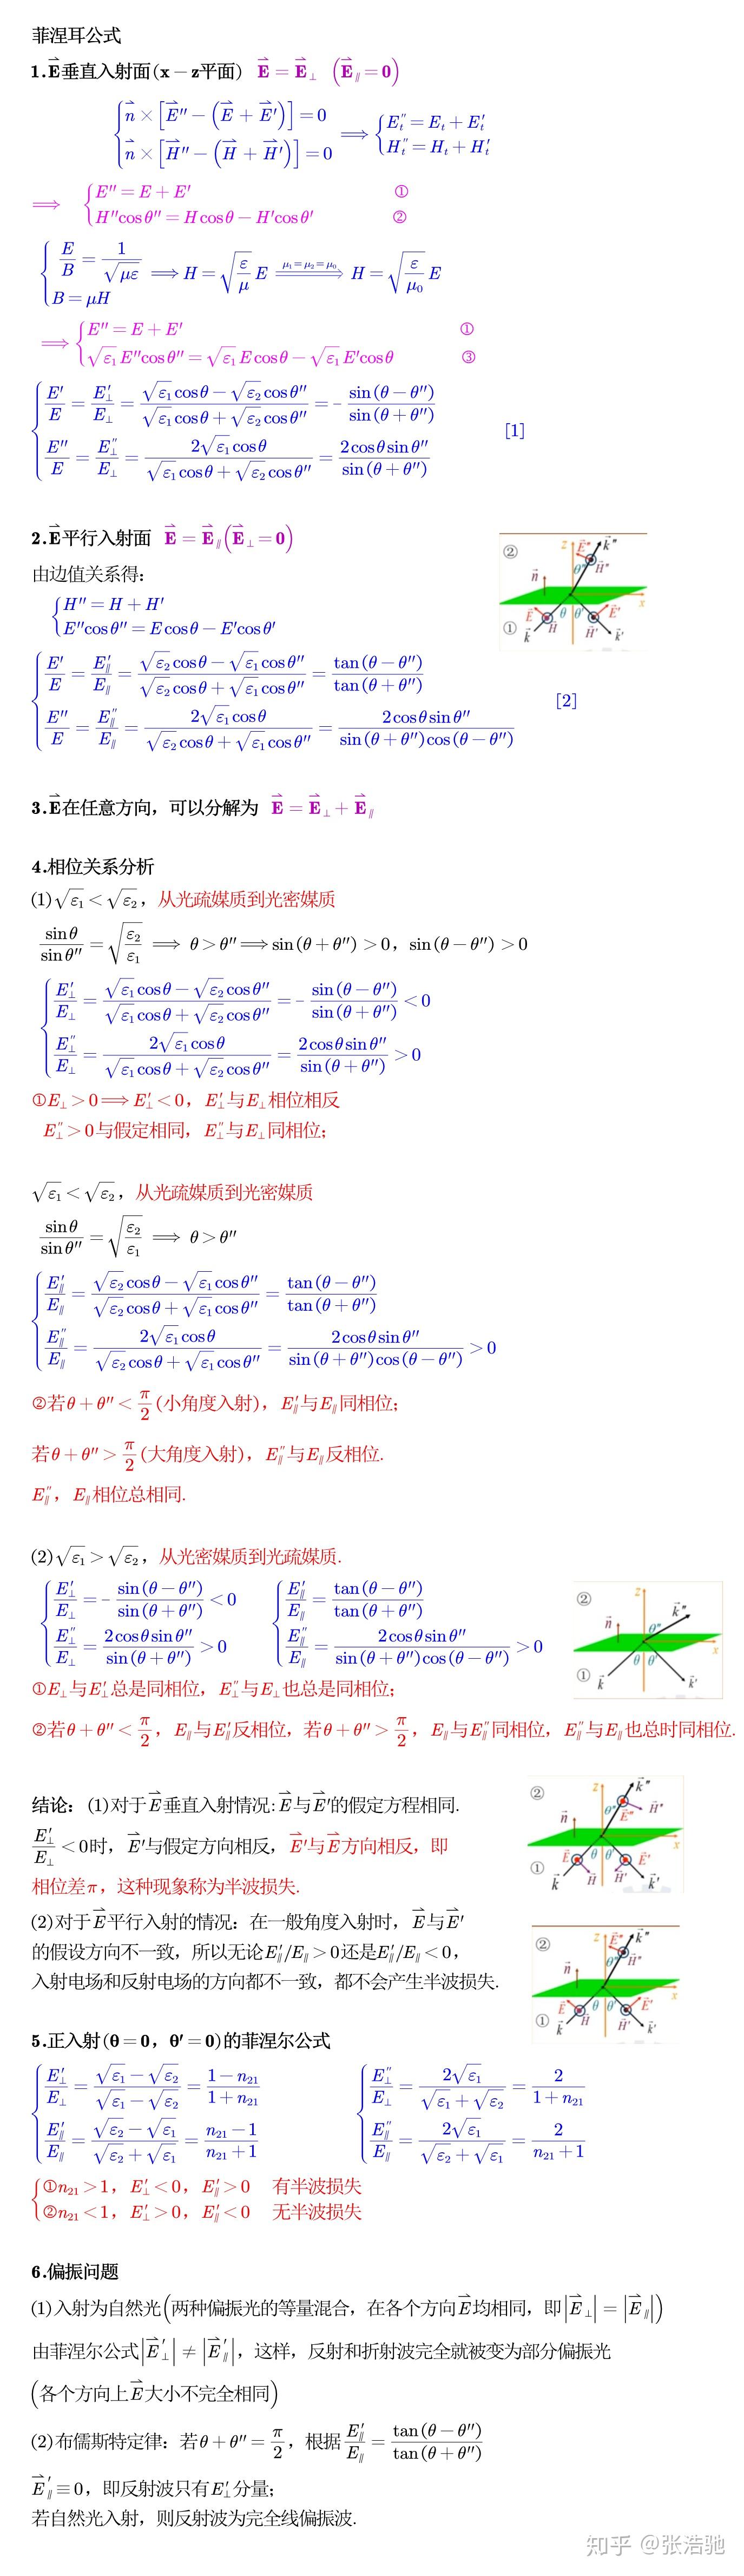 菲涅耳公式
1.E⃗垂直入射面(x−z平面) E⃗=E⃗⊥ (E⃗∥=0)
{n⃗×[E⃗''−(E⃗+E⃗')]=0
n⃗×[H⃗''−(H⃗+H⃗')]=0 ⟹ {E''t=Et+E't
H''t=Ht+H't
⟹ {E''=E+E' ①
H''cosθ''=Hcosθ−H'cosθ' ②
{E/B=1/√(με)
B=μH ⟹ H=√(ε/μ) E =(μ1=μ2=μ0)⟹ H=√(ε/μ0) E
⟹ {E''=E+E' ①
√ε1 E''cosθ''=√ε1 Ecosθ−√ε1 E'cosθ ③
{E'/E=E'⊥/E⊥=(√ε1 cosθ−√ε2 cosθ'')/(√ε1 cosθ+√ε2 cosθ'')=−sin(θ−θ'')/sin(θ+θ'')
E''/E=E''⊥/E⊥=2√ε1 cosθ/(√ε1 cosθ+√ε2 cosθ'')=2cosθsinθ''/sin(θ+θ'') [1]
2.E⃗平行入射面 E⃗=E⃗∥(E⃗⊥=0)
由边值关系得：
{H''=H+H'
E''cosθ''=Ecosθ−E'cosθ'
② z E⃗'' k⃗'' θ'' H⃗'' n⃗ x
① E⃗ θ θ' E⃗' k⃗ H⃗ H⃗' k⃗'
{E'/E=E'∥/E∥=(√ε2 cosθ−√ε1 cosθ'')/(√ε2 cosθ+√ε1 cosθ'')=tan(θ−θ'')/tan(θ+θ'')
E''/E=E''∥/E∥=2√ε1 cosθ/(√ε2 cosθ+√ε1 cosθ'')=2cosθsinθ''/(sin(θ+θ'')cos(θ−θ'')) [2]
3.E⃗在任意方向，可以分解为 E⃗=E⃗⊥+E⃗∥
4.相位关系分析
(1)√ε1<√ε2，从光疏媒质到光密媒质
sinθ/sinθ''=√(ε2/ε1) ⟹ θ>θ''⟹sin(θ+θ'')>0，sin(θ−θ'')>0
{E'⊥/E⊥=(√ε1 cosθ−√ε2 cosθ'')/(√ε1 cosθ+√ε2 cosθ'')=−sin(θ−θ'')/sin(θ+θ'')<0
E''⊥/E⊥=2√ε1 cosθ/(√ε1 cosθ+√ε2 cosθ'')=2cosθsinθ''/sin(θ+θ'')>0
①E⊥>0⟹E'⊥<0，E'⊥与E⊥相位相反
E''⊥>0与假定相同，E''⊥与E⊥同相位；
√ε1<√ε2，从光疏媒质到光密媒质
sinθ/sinθ''=√(ε2/ε1) ⟹ θ>θ''
{E'∥/E∥=(√ε2 cosθ−√ε1 cosθ'')/(√ε2 cosθ+√ε1 cosθ'')=tan(θ−θ'')/tan(θ+θ'')
E''∥/E∥=2√ε1 cosθ/(√ε2 cosθ+√ε1 cosθ'')=2cosθsinθ''/(sin(θ+θ'')cos(θ−θ''))>0
②若θ+θ''<π/2(小角度入射)，E'∥与E∥同相位；
若θ+θ''>π/2(大角度入射)，E''∥与E∥反相位.
E''∥，E∥相位总相同.
(2)√ε1>√ε2，从光密媒质到光疏媒质.
{E'⊥/E⊥=−sin(θ−θ'')/sin(θ+θ'')<0
E''⊥/E⊥=2cosθsinθ''/sin(θ+θ'')>0
{E'∥/E∥=tan(θ−θ'')/tan(θ+θ'')
E''∥/E∥=2cosθsinθ''/(sin(θ+θ'')cos(θ−θ''))>0
② z k⃗'' n⃗ θ'' x
① θ θ' k⃗ k⃗'
①E⊥与E'⊥总是同相位，E''⊥与E⊥也总是同相位；
②若θ+θ''<π/2，E∥与E'∥反相位，若θ+θ''>π/2，E∥与E''∥同相位，E''∥与E∥也总时同相位.
结论：(1)对于E⃗垂直入射情况:E⃗与E⃗'的假定方程相同.
E'⊥/E⊥<0时，E⃗'与假定方向相反，E⃗'与E⃗方向相反，即
相位差π，这种现象称为半波损失.
② z k⃗'' θ'' E⃗'' H⃗'' n⃗ x
① E⃗ θ θ' E⃗' k⃗ H⃗ H⃗' k⃗'
(2)对于E⃗平行入射的情况：在一般角度入射时，E⃗与E⃗'
的假设方向不一致，所以无论E'∥/E∥>0还是E'∥/E∥<0，
入射电场和反射电场的方向都不一致，都不会产生半波损失.
② z E⃗'' k⃗'' θ'' H⃗'' n⃗ x
① E⃗ θ θ' E⃗' k⃗ H⃗ H⃗' k⃗'
5.正入射(θ=0，θ'=0)的菲涅尔公式
{E'⊥/E⊥=(√ε1−√ε2)/(√ε1−√ε2)=(1−n21)/(1+n21)
E'∥/E∥=(√ε2−√ε1)/(√ε2+√ε1)=(n21−1)/(n21+1)
{E''⊥/E⊥=2√ε1/(√ε1+√ε2)=2/(1+n21)
E''∥/E∥=2√ε1/(√ε2+√ε1)=2/(n21+1)
{①n21>1，E'⊥<0，E'∥>0 有半波损失
②n21<1，E'⊥>0，E'∥<0 无半波损失
6.偏振问题
(1)入射为自然光(两种偏振光的等量混合，在各个方向E⃗均相同，即|E⃗⊥|=|E⃗∥|)
由菲涅尔公式|E⃗'⊥|≠|E⃗'∥|，这样，反射和折射波完全就被变为部分偏振光
(各个方向上E⃗大小不完全相同)
(2)布儒斯特定律：若θ+θ''=π/2，根据E'∥/E∥=tan(θ−θ'')/tan(θ+θ'')
E⃗'∥≡0，即反射波只有E'⊥分量；
若自然光入射，则反射波为完全线偏振波.
知乎 @张浩驰